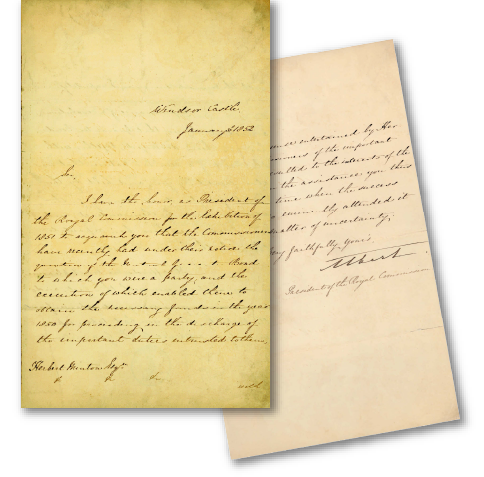 Windsor Castle,
January 6 1852
Sir,
I have the honor, as President of
the Royal Commission for the Exhibition of
1851 to acquaint you that the Commissioners
have recently had under their review the
question of the Mutual Guarantee Bond
to which you were a party, and the
execution of which enabled them to
obtain the necessary funds in the year
1850 for proceeding in the discharge of
the important duties entrusted to them,
Herbert Minton Esqr.
&c &c &c
entertained by Her
of the important
to the interests of the
the assistance you thus
time when the success
eminently attended it
matter of uncertainty;
Very faithfully, Yours,
Albert
President of the Royal Commission